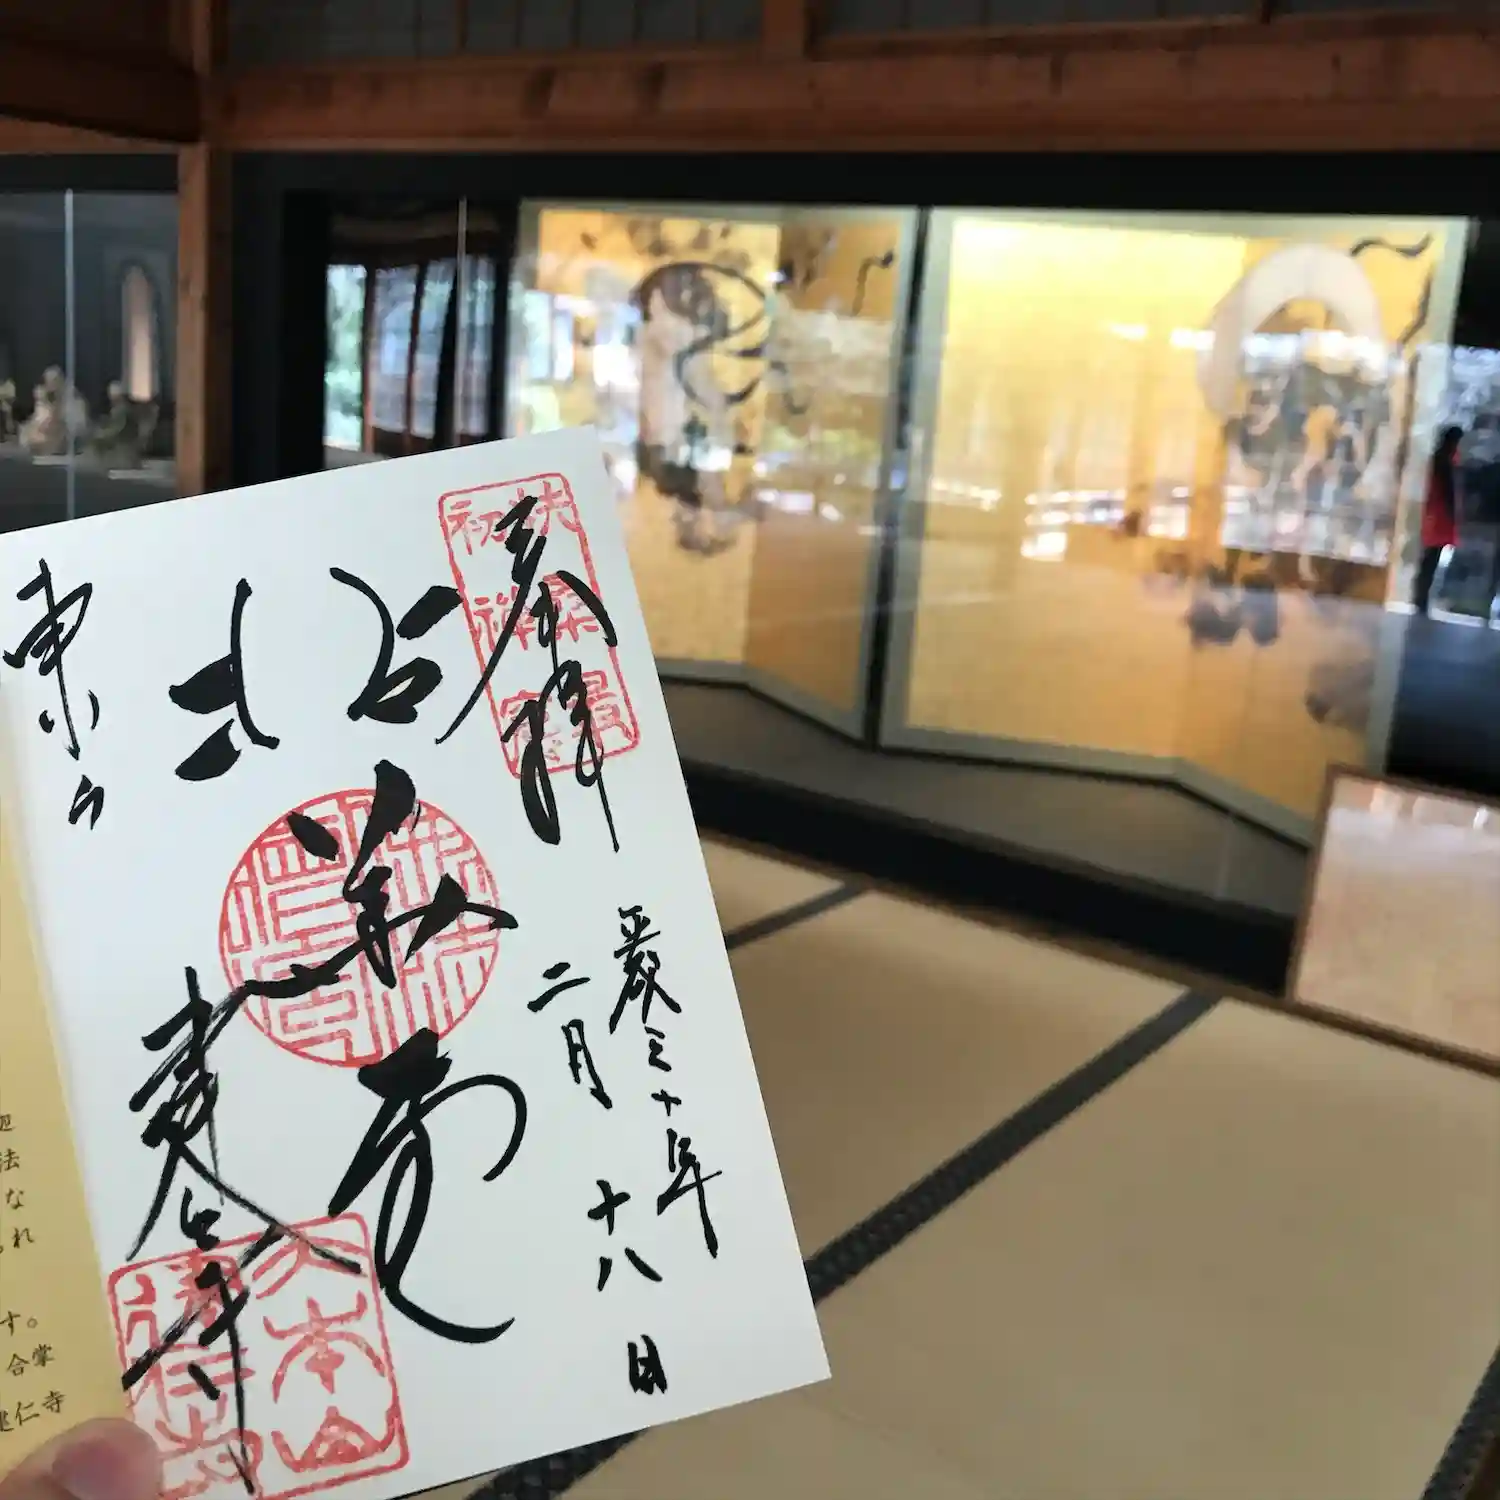 奉拝
平成三十年
二月十八日
拈華堂
東山
建仁寺
扶桑最
初禅窟
大本山
建仁寺
法
な
れ
す。
合掌
建仁寺